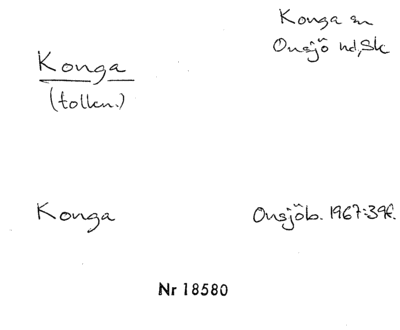 Konga sn
Onsjö hd, Sk
Konga
(tolkn.)
Konga
Onsjöb. 1967:39f.
Nr 18580